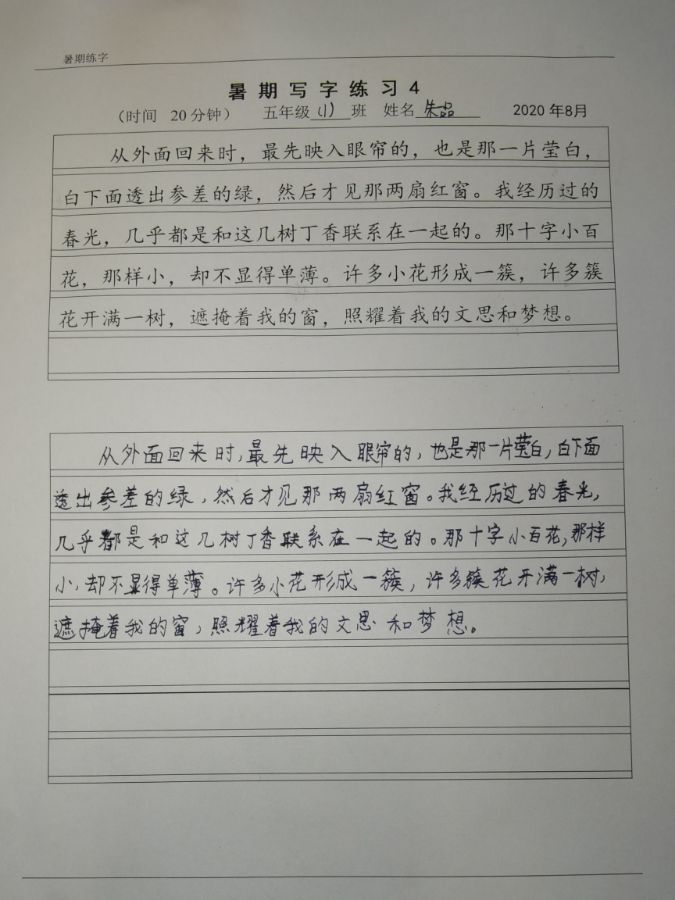 暑期练字
暑期写字练习4
（时间 20分钟） 五年级(1)班 姓名朱品 2020年8月
从外面回来时，最先映入眼帘的，也是那一片莹白，
白下面透出参差的绿，然后才见那两扇红窗。我经历过的
春光，几乎都是和这几树丁香联系在一起的。那十字小百
花，那样小，却不显得单薄。许多小花形成一簇，许多簇
花开满一树，遮掩着我的窗，照耀着我的文思和梦想。
从外面回来时，最先映入眼帘的，也是那一片莹白，白下面
透出参差的绿，然后才见那两扇红窗。我经历过的春光，
几乎都是和这几树丁香联系在一起的。那十字小百花，那样
小，却不显得单薄。许多小花形成一簇，许多簇花开满一树，
遮掩着我的窗，照耀着我的文思和梦想。